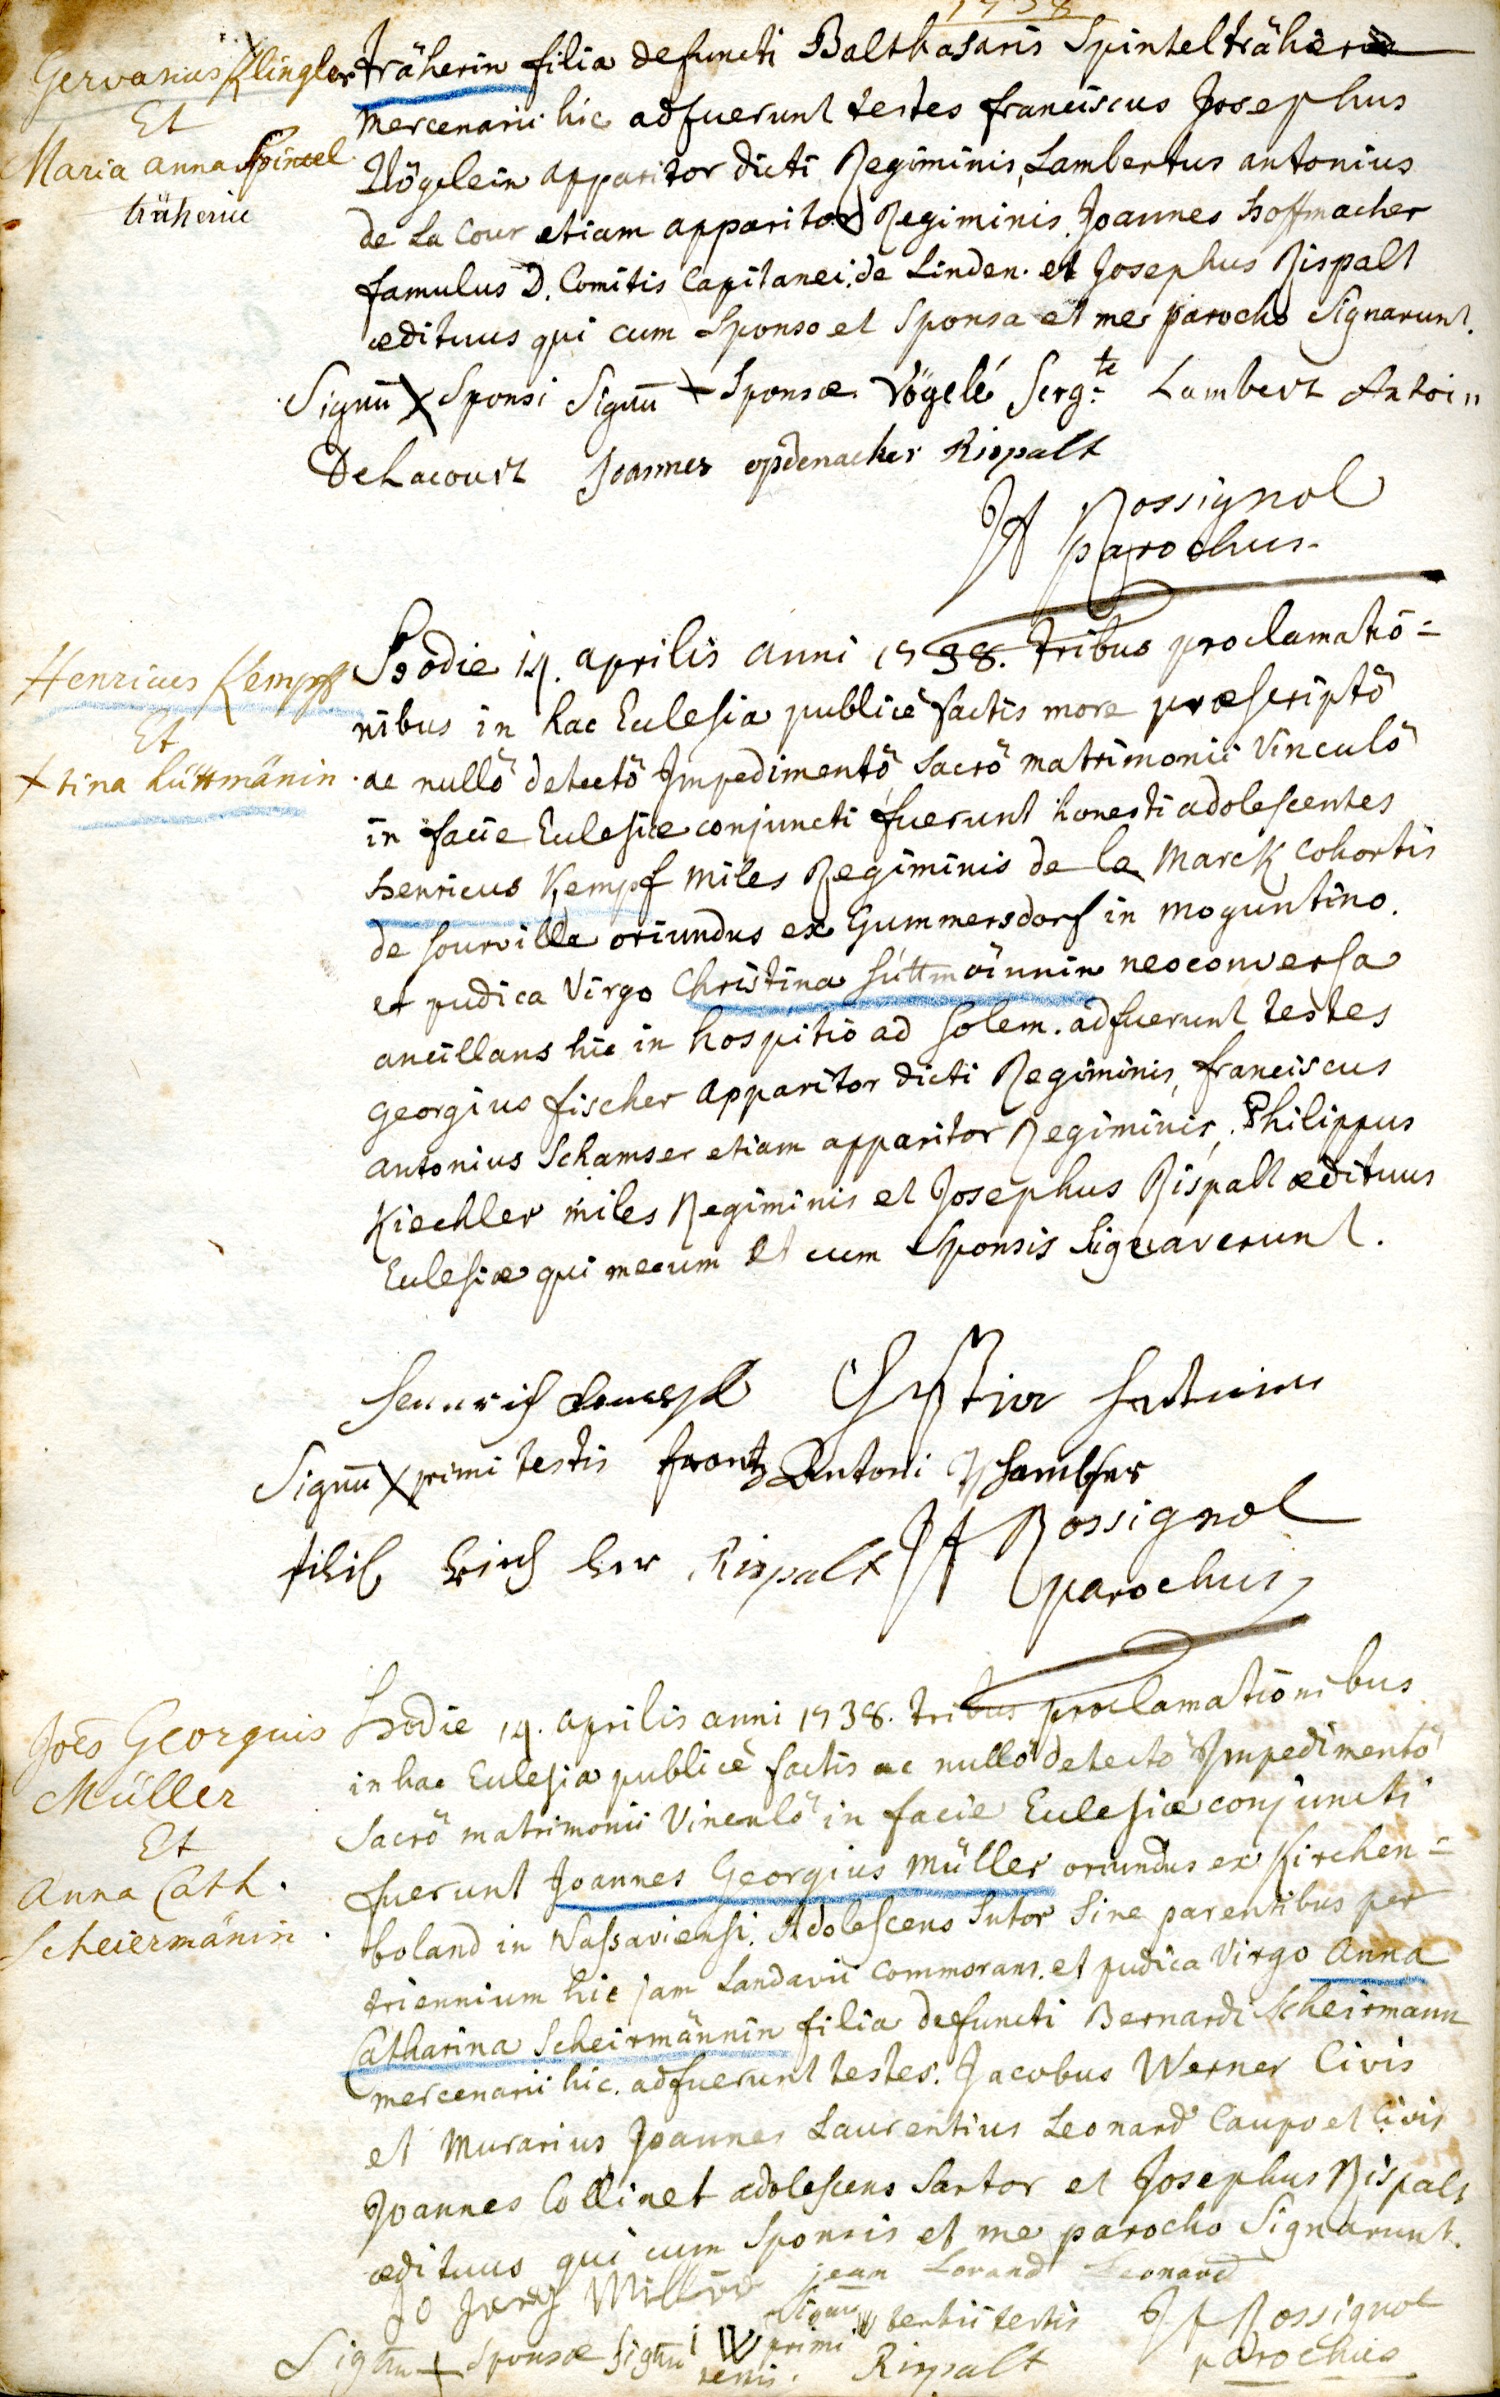 1738
Gervasius Klingler
Et
Maria anna Spintel
träherin
träherin filia defuncti Balthasaris Spintelträher
mercenarii hic adfuerunt testes franciscus Josephus
Vögelein apparitor dicti Regiminis, Lambertus antonius
de La Cour etiam apparitor Regiminis. Joannes hoffmacher
famulus D. Comitis Capitanei de Linden. et Josephus Rispalt
ædituus qui cum Sponso et Sponsa et me parocho Signarunt.
Signū X Sponsi Signū + Sponsæ Vögelé Serg.te Lambert Antoin
DeLacourt Joannes opdenacker Rispalt
JA Rossignol
parochus.
Henricus Kempf
Et
Xtina hüttmänin
Hodie 14. aprilis anni 1738. tribus proclamatio=
nibus in hac Eclesia publicè factis more præscriptô
ac nullô detectô Impedimentô Sacrô matrimonii Vinculô
in facie Eclesiæ conjuncti fuerunt honesti adolescentes
henricus Kempf miles Regiminis de la Marck Cohortis
de sourville oriundus ex Gummersdorf in moguntino.
et pudica Virgo Christina hüttmännin neoconversa
ancillans hic in hospitio ad Solem. adfuerunt testes
georgius fischer apparitor dicti Regiminis, franciscus
antonius Schamser etiam apparitor Regiminis, Philippus
Kiechler miles Regiminis et Josephus Rispalt ædituus
Eclesiæ qui mecum et cum Sponsis Signaverunt.
Signū X primi testis frantz Antoni
Rispalt JA Rossignol
parochus
Joēs Georgius
Müller
Et
Anna Cath.
Scheiermänin
Hodie 14. aprilis anni 1738. tribus proclamationibus
in hac Eclesia publicè factis ac nullô detectô Impedimentô
Sacrô matrimonii Vinculô in facie Eclesiæ conjuncti
fuerunt Joannes Georgius Müller oriundus ex Kirchen=
boland in Nassaviensi. Adolescens Sutor Sine parentibus per
triennium hic jam Landavii Commorans. et pudica Virgo Anna
Catharina Scheirmännin filia defuncti Bernardi Scheirmann
mercenarii hic. adfuerunt testes. Jacobus Werner Civis
et Murarius Joannes Laurentius Leonard Caupo et Civis
Joannes Collinet adolescens Sartor et Josephus Rispalt
ædituus qui cum Sponsis et me parocho Signarunt.
jean Lorand Leonard
Signū tertii testis JA Rossignol
Signū + Sponsæ Signū W primi testis. Rispalt parochus